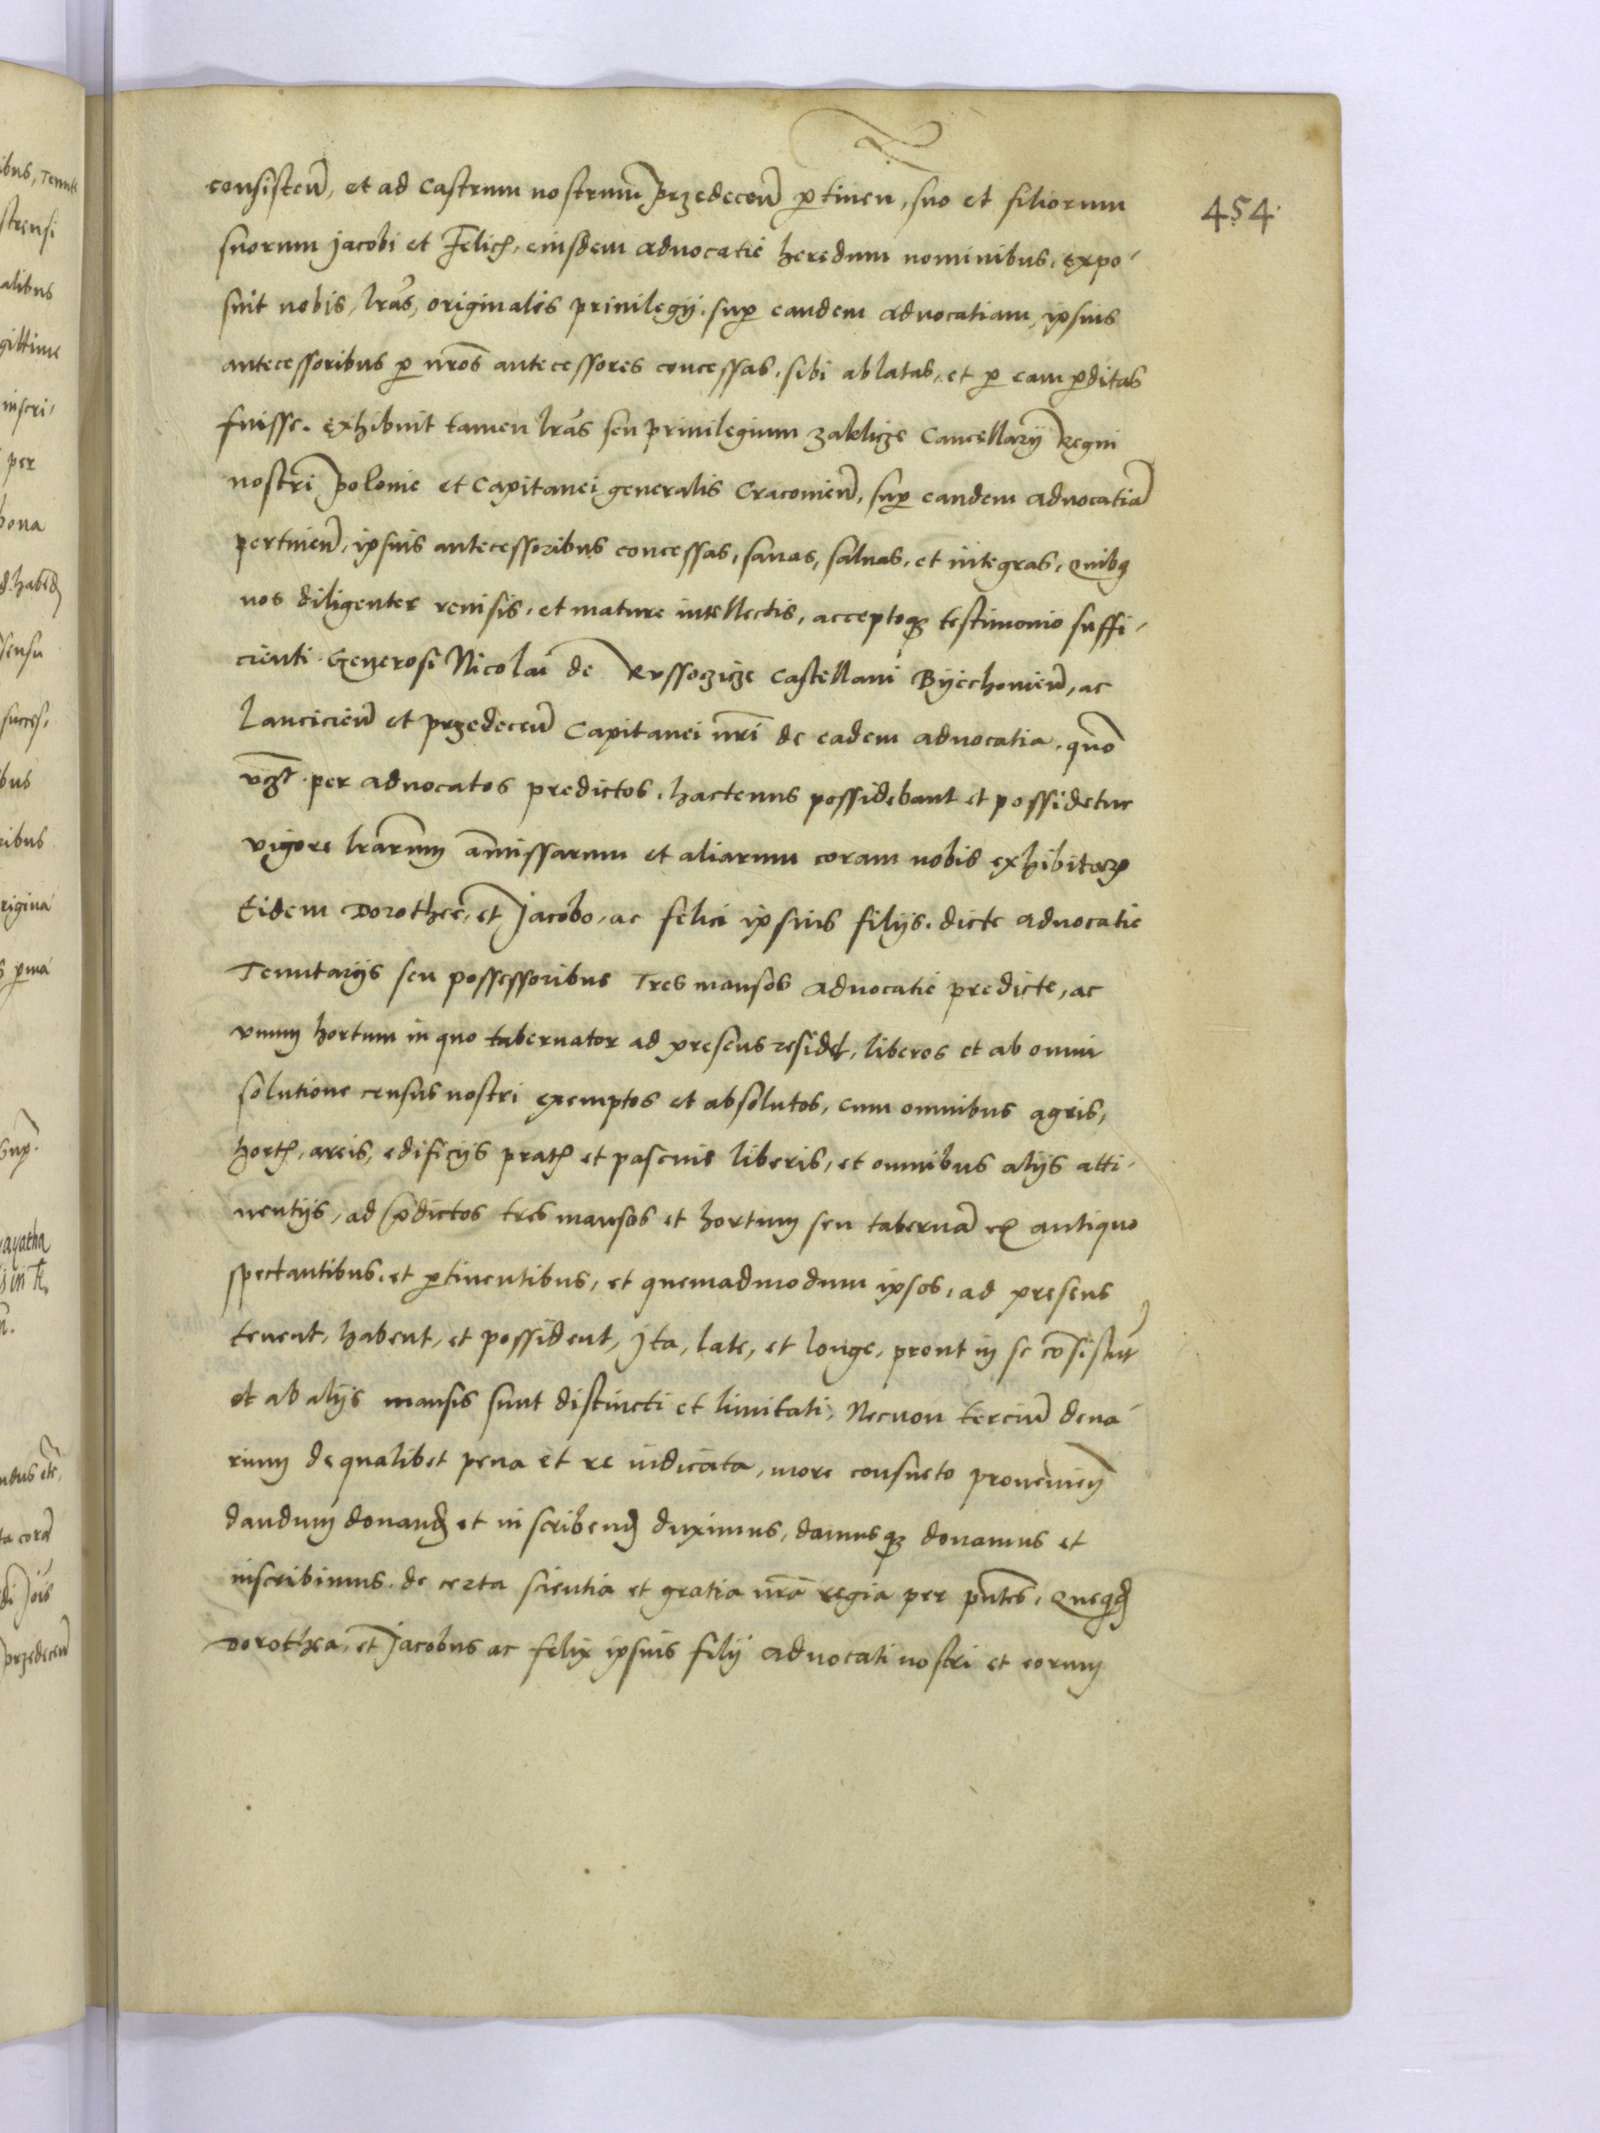 454
consisteñ, et ad Castrum nostrum Przedeceñ ptineñ, suo et filiorum
suorum Jacobi et Felicis, eiusdem advocatie heredum nominibus, expo-
suit nobis, lras, originales privilegij, sup eandem advocatiam, ipsius
antecessoribus p nros antecessores concessas, sibi ablatas, et p eam pditas
fuisse. exhibuit tamen lras seu privilegium zaklicze Cancellarij Regni
nostri Polonie et Capitanei generalis Cracovieñ, sup eandem advocatiã
pertineñ, ipsius antecessoribus concessas, sanas, salvas, et integras, Quibus
nos diligenter revisis, et mature intellectis, acceptoque testimonio suffi-
cienti Generosi Nicolai de Russoczicze Castellani Byechovieñ, ac
Lancicieñ et Przedeceñ Capitanei nri de eadem advocatia, quõ
per advocatos predictos, hactenus possidebant et possidetur
vigore lrarum amissarum et aliarum coram nobis exhibitarum
Eidem Dorothee, et Jacobo, ac felici ipsius filijs, dicte advocatie
Tenutarijs seu possessoribus Tres mansos advocatie predicte, ac
unum hortum in quo tabernator ad presens residet, liberos et ab omni
solutione census nostri exemptos et absolutos, cum omnibus agris,
hortis, areis, edificijs pratis et pascuis liberis, et omnibus alijs atti-
nentijs, ad pdictos tres mansos et hortum seu tabernã ex antiquo
spectantibus, et ptinentibus, et quemadmodum ipsos, ad presens
tenent, habent, et possident, Ita, late, et longe, prout in se cõsistunt
et ab alijs mansis sunt distincti et limitati, Necnon terciũ dena-
rium de qualibet pena et re iudicata, more consueto provenieñ
dandum donand et inscribend duximus, damusque donamus et
inscribimus, de certa scientia et gratia nra regia per pntes, Quequid
Dorothea, et Jacobus ac felix ipsius filij advocati nostri et eorum